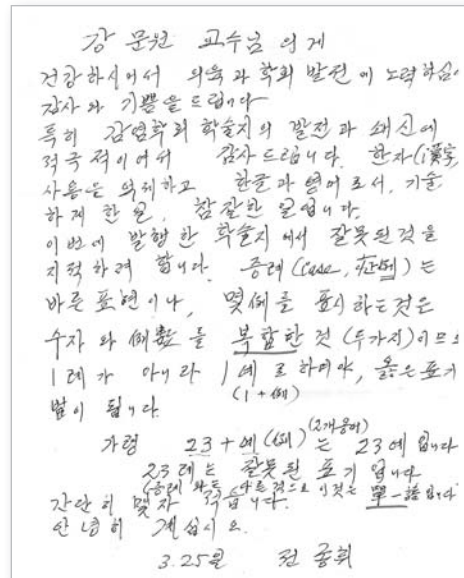 강 문원 교수님 의게
건강하시어서 의육과 학회 발전에 노력하심에
감사와 기쁨을 드립니다
특히 감염학회 학술지의 발전과 쇄신에
적극적이어서 감사드립니다. 한자(漢字)
사용은 억제하고 한글과 영어로서, 기술
하게 한 일, 참 잘한 일입니다.
이번에 발행한 학술지에서 잘못된것을
지적하려 합니다. 증례(case, 症例)는
바른 표현이나, 몇例를 표시하는것은
수자와 例數를 복합한 것(두가지)이므로
1례가 아니라 1예로 하여야, 옳은 표기
(1+例)
법이 됩니다.
가령 23+예(例)(2개용어)는 23예입니다
23례는 잘못된 표기입니다
(증례와는 다른것으로 이것은 單一語입니다
간단히 몇자 적습니다.
안녕히 계십시요.
3.25일 전종휘